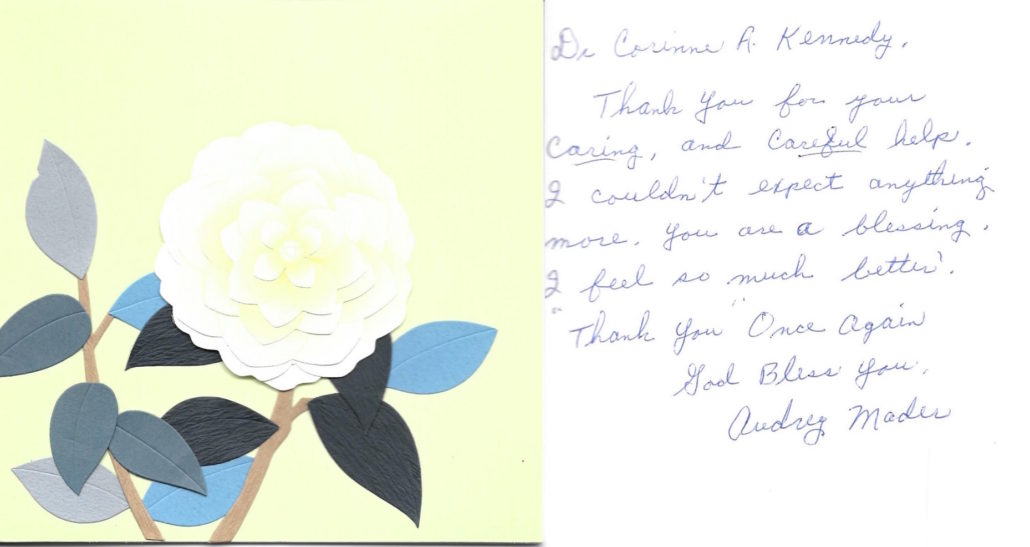 Dr Corinne A. Kennedy,
Thank you for your
caring, and careful help.
I couldn't expect anything
more. You are a blessing.
I feel so much better.
"Thank you" Once Again
God Bless You.
Audrey Mader